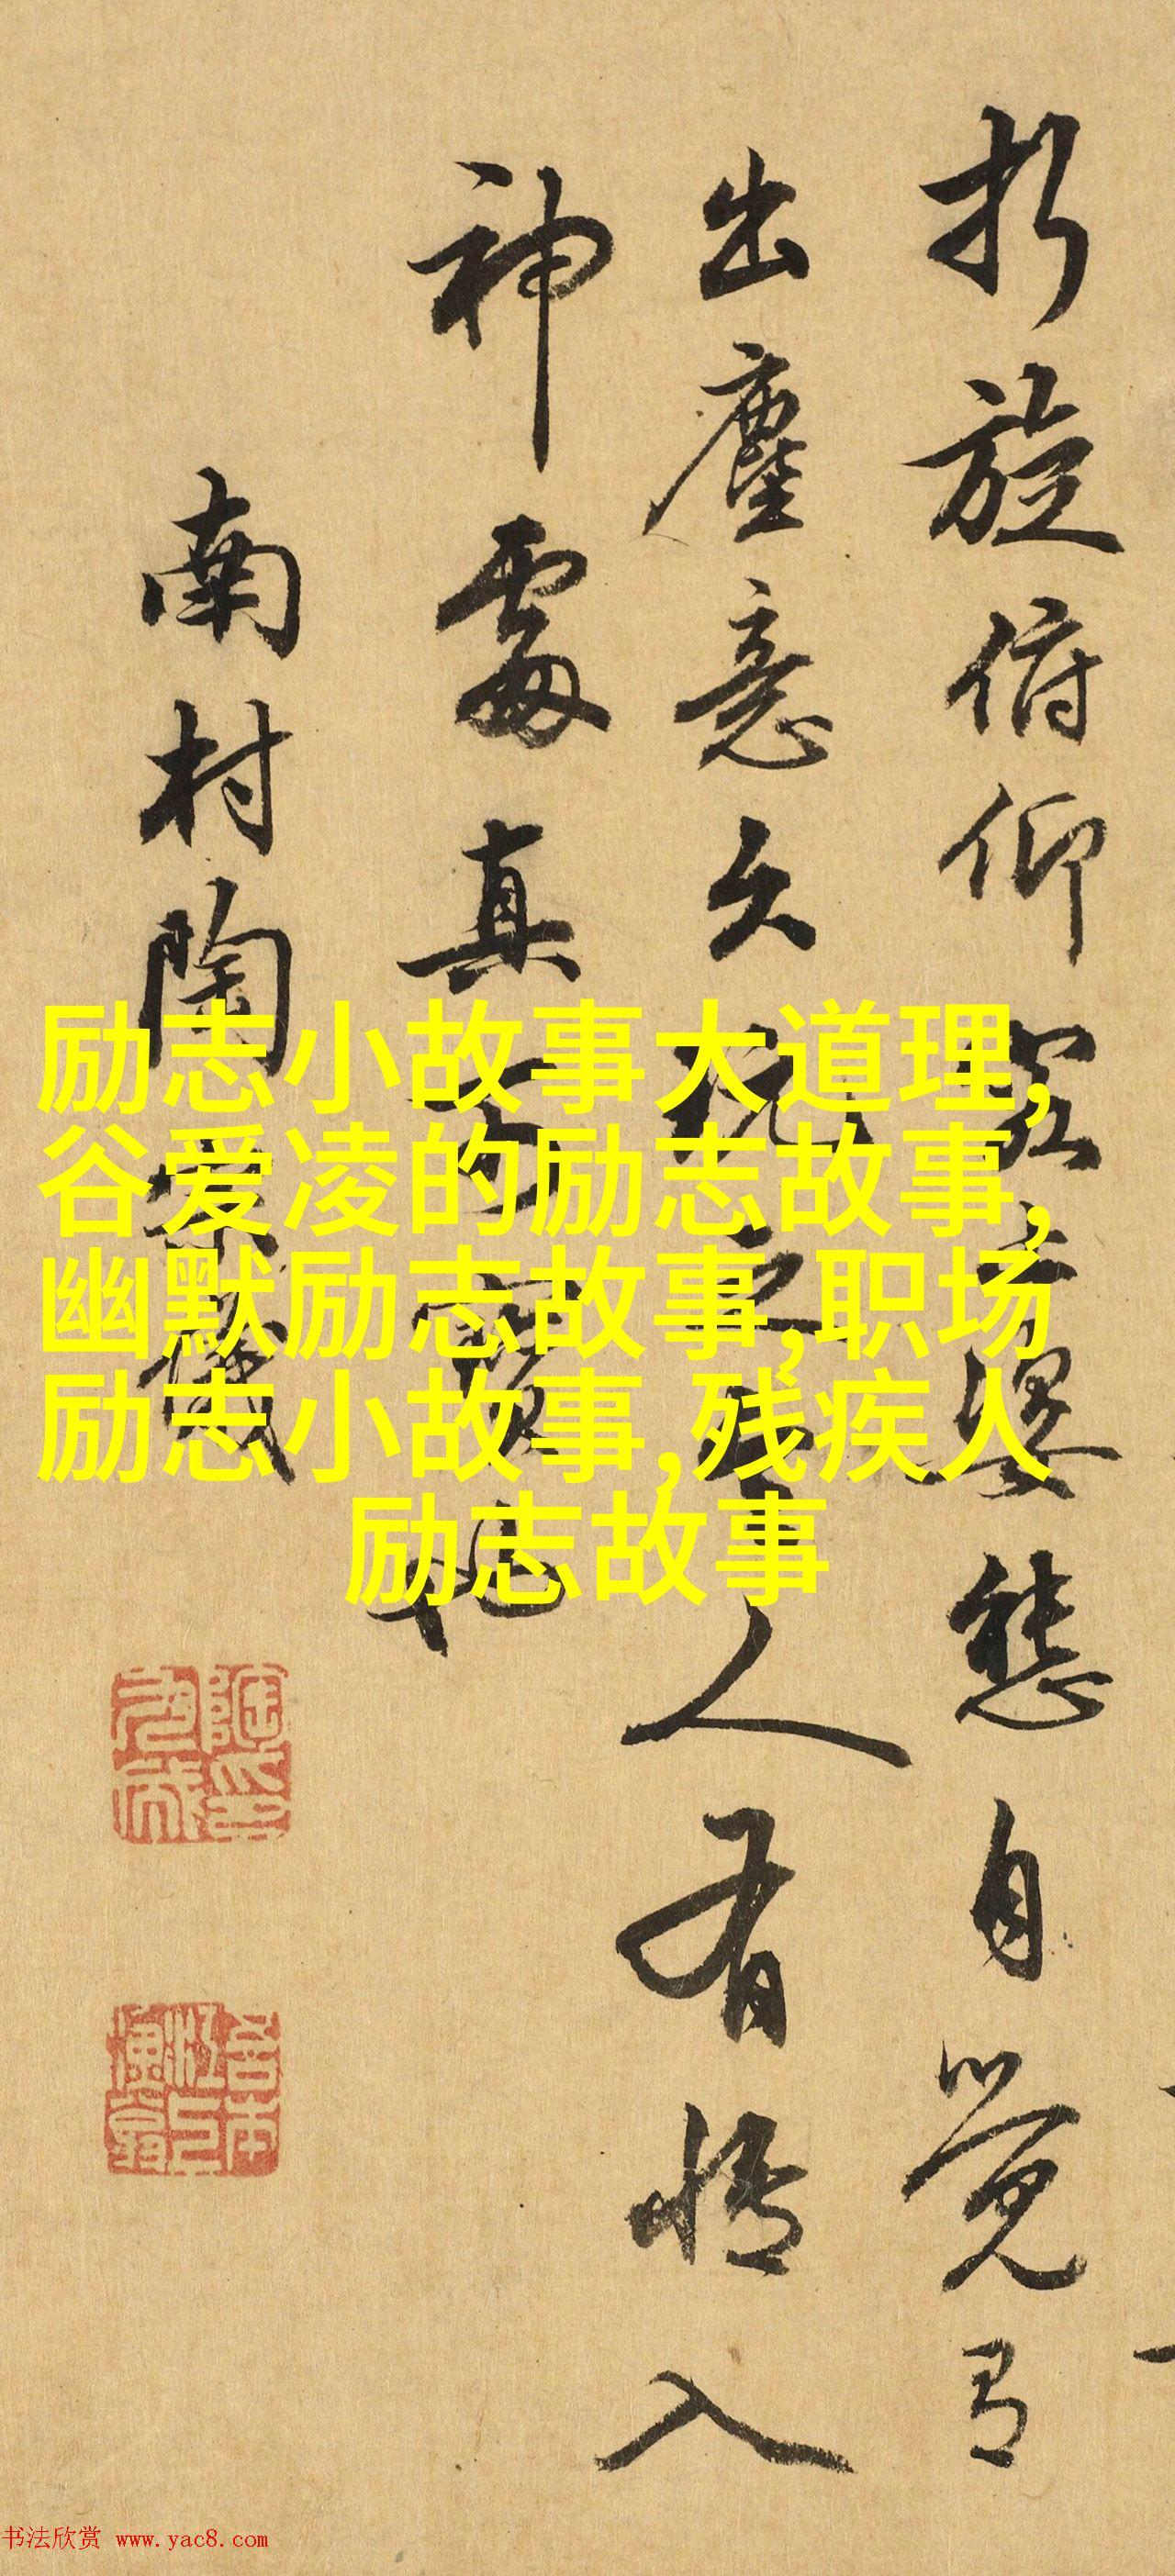 折旋俯仰態自覺有
出塵意久玩之令人有情入
神處真可寶也
南村陶宗儀
励志小故事大道理,
谷爱凌的励志故事,
幽默励志故事,职场
励志小故事,残疾人
励志故事
书法欣赏 www.yac8.com